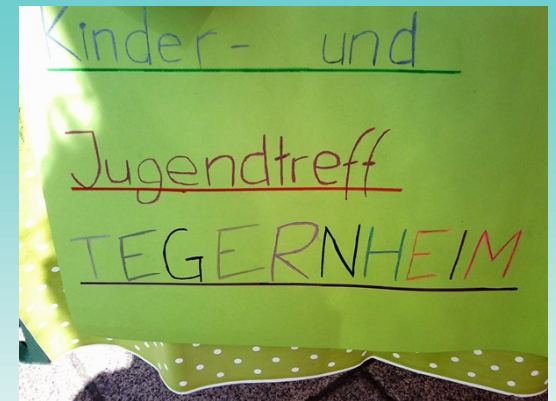 Kinder- und
Jugendtreff
TEGERNHEIM